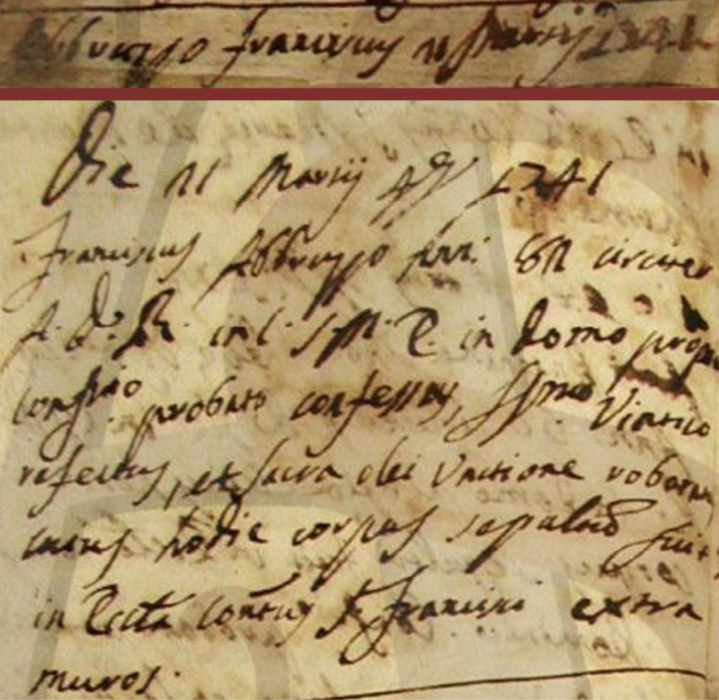 Abbruzzo Franciscus 11 Martij 1741
Die 11 Martij 4e Ind. 1741
Franciscus Abbruzzo 61 circiter
A. D. R. in C. S. M. E. in domo propria
confrio probato confessus, SSmo Viatico
refectus, et sacra olei Unctione roboratus
cuius hodie corpus sepultum fuit
in Eccla Contus Sti Francisci extra
muros.